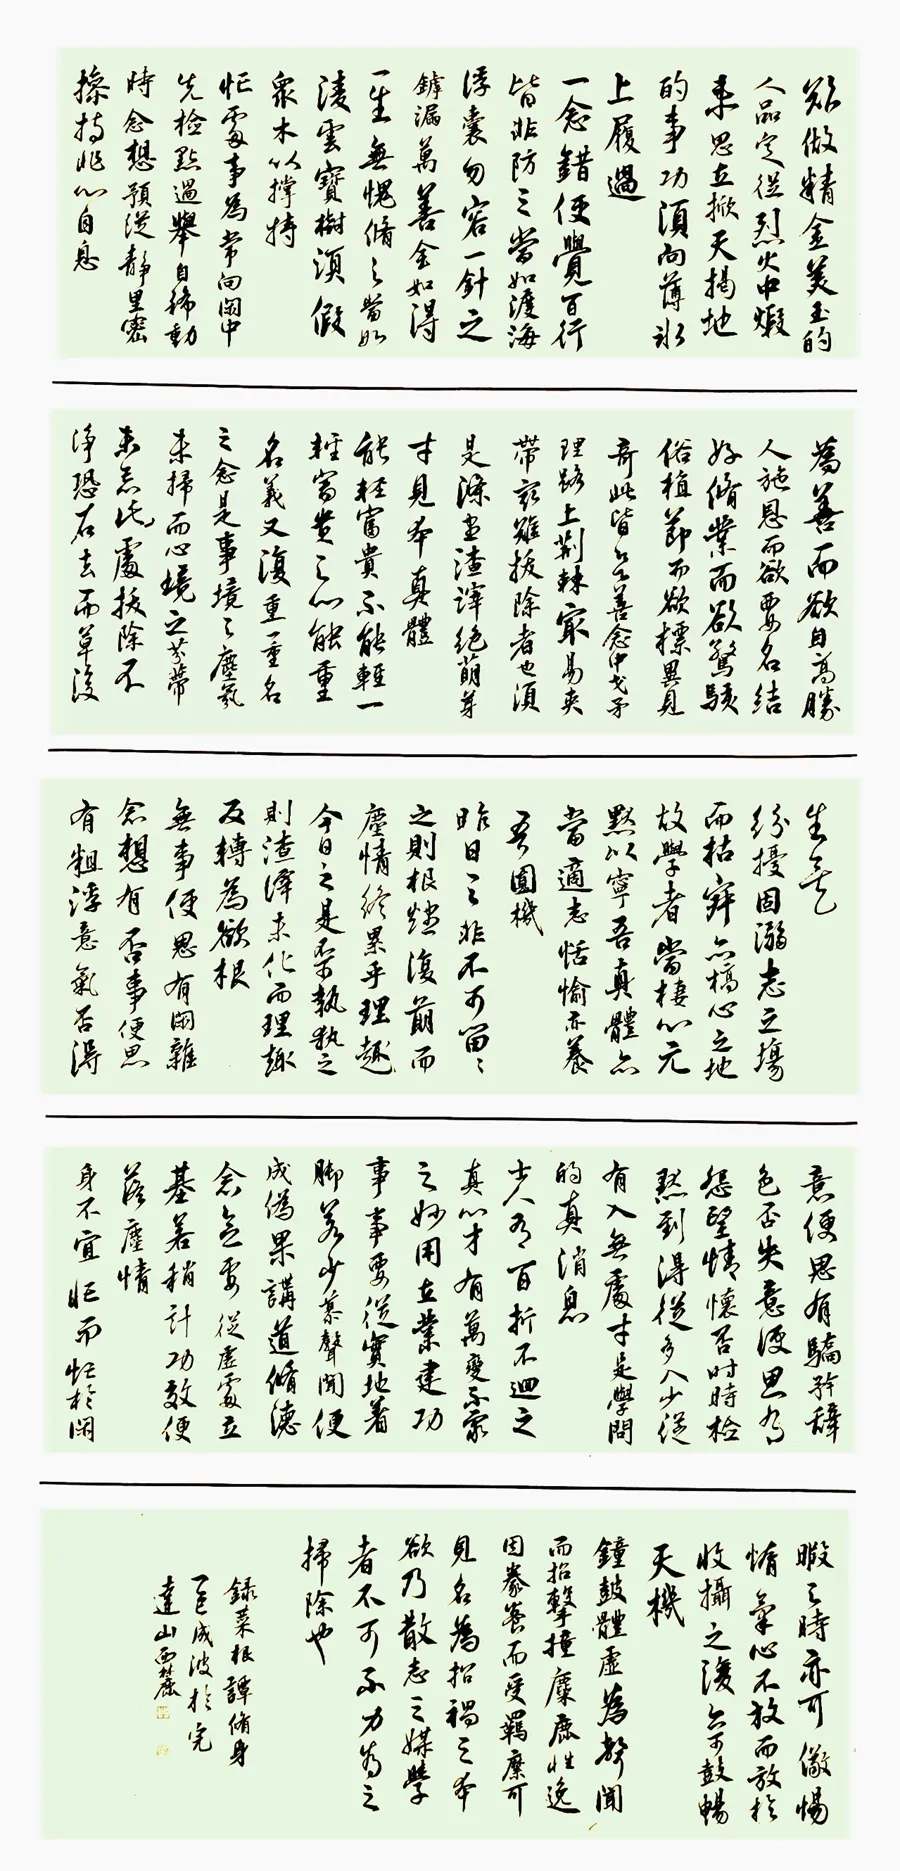 欲做精金美玉的
人品定從烈火中煅
來思立掀天揭地
的事功須向薄冰
上履過
一念錯便覺百行
皆非防之當如渡海
浮囊勿容一針之
罅漏萬善全始得
一生無愧脩之當如
凌雲寶樹須假
眾木以撐持
忙處事為常向閑中
先檢點過舉自稀動
時念想預從靜里密
操持非心自息
為善而欲自高勝
人施恩而欲要名結
好脩業而欲驚駭
俗植節而欲標異見
奇此皆是善念中戈矛
理路上荊棘最易夾
帶最難拔除者也須
是滌盡渣滓絕萌芽
才見本真體
能輕富貴不能輕一
輕富貴之心能重
名義又復重一重名
之念是事境之塵氛
未掃而心境之芥蒂
未忘此處拔除不
淨恐石去而草復
生矣
紛擾固溺志之場
而枯寂亦槁心之地
故學者當棲心元
默以寧吾真體亦
當適志恬愉亦養
吾圓機
昨日之非不可留留
之則根燼復萌而
塵情終累乎理趣
今日之是不可執執之
則渣滓未化而理趣
反轉為欲根
無事便思有閑雜
念想有否事便思
有粗浮意氣否得
意便思有驕矜辭
色否失意便思有
怨望情懷否時時檢
點到得從多入少從
有入無處才是學問
的真消息
士人有百折不迴之
真心才有萬變不窮
之妙用立業建功
事事要從實地著
腳若少慕聲聞便
成偽果講道脩德
念念要從虛處立
基若稍計功效便
落塵情
身不宜忙而忙於閑
暇之時亦可儆惕
惰氣心不放而放於
收攝之後亦可鼓暢
天機
鐘鼓體虛為聲聞
而招擊撞麋鹿性逸
因豢養而受羈縻可
見名為招禍之本
欲乃散志之媒學
者不可不力為之
掃除也
錄菜根譚脩身
成波於完
達山西麓